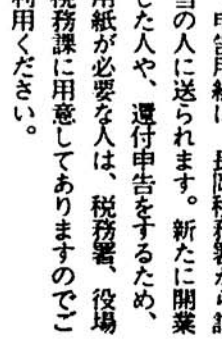 申告用紙は、長岡税務署から該
当の人に送られます。新たに開業
した人や、還付申告をするため、
用紙が必要な人は、税務署、役場
税務課に用意してありますのでご
利用ください。